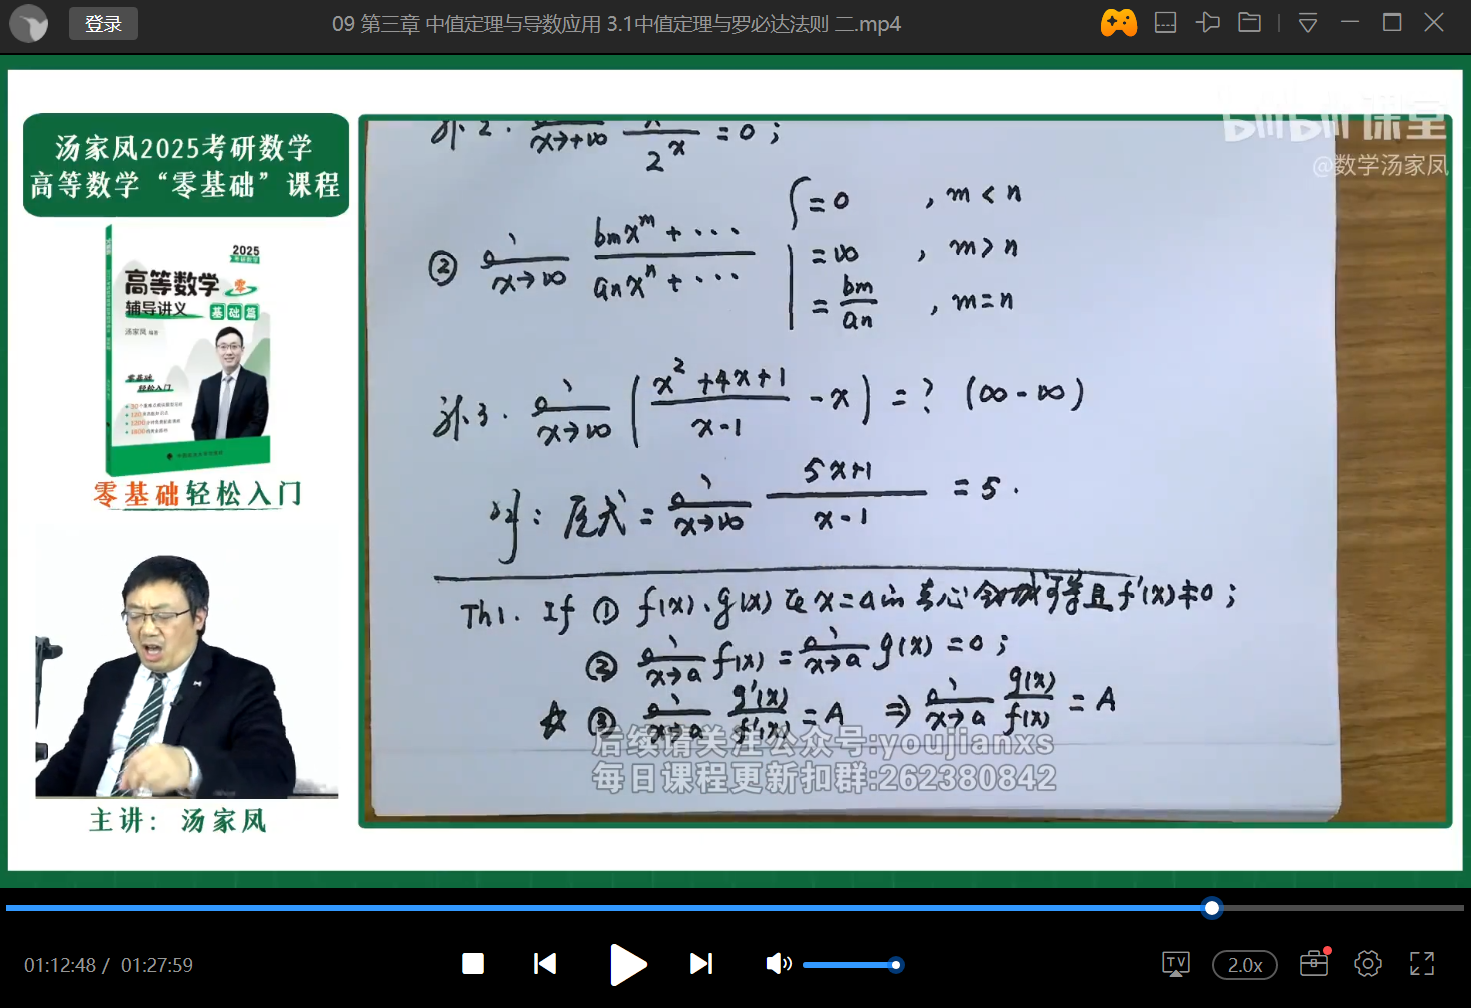 登录
09 第三章 中值定理与导数应用 3.1中值定理与罗必达法则 二.mp4
汤家凤2025考研数学
高等数学“零基础”课程
2025
高等数学 零
辅导讲义 基础篇
汤家凤 编著
零基础
轻松入门
零基础轻松入门
主讲：汤家凤
bilibili 课堂
@数学汤家凤
例2. lim x→+∞ x/2^x = 0;
② lim x→∞ (bmx^m + ···)/(anx^n + ···) { = 0, m < n
= ∞, m > n
= bm/an, m = n
例3. lim x→∞ ( (x²+4x+1)/(x-1) - x ) = ? (∞-∞)
解: 原式 = lim x→∞ (5x+1)/(x-1) = 5.
Th1. If ① f(x)、g(x) 在 x=a的去心邻域可导且 f'(x)≠0;
② lim x→a f(x) = lim x→a g(x) = 0;
☆ ③ lim x→a g'(x)/f'(x) = A ⇒ lim x→a g(x)/f(x) = A
后续请关注公众号:youjianxs
每日课程更新扣群:262380842
01:12:48 / 01:27:59
TV
2.0x